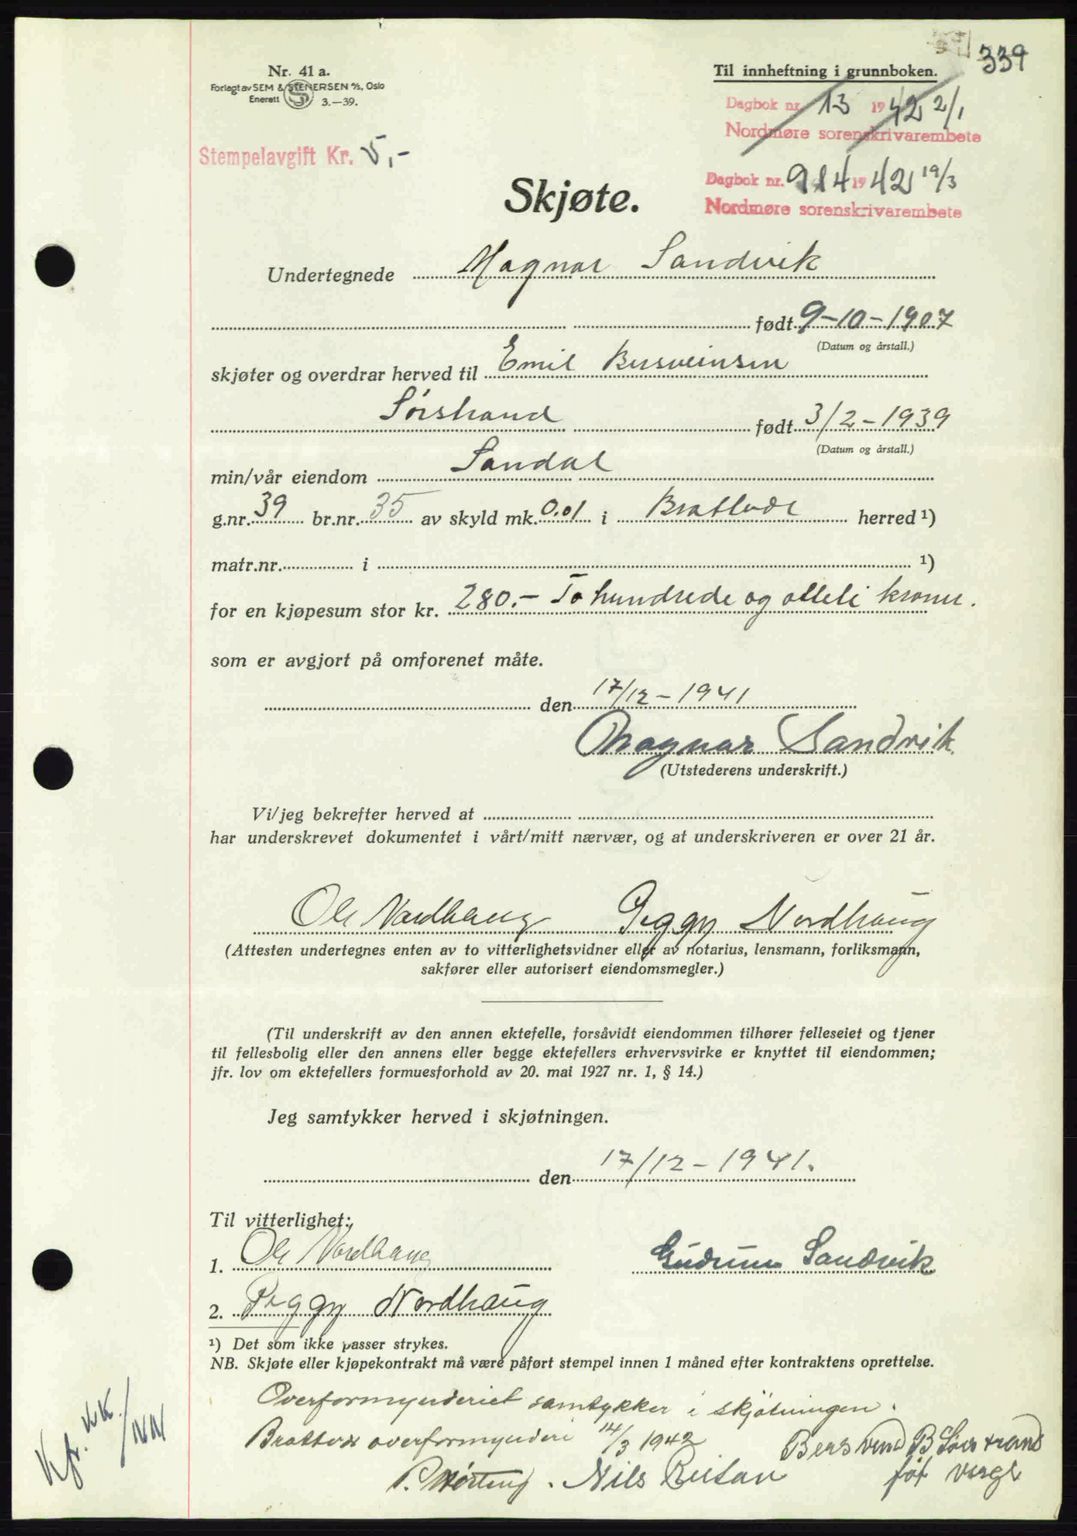 339
Nr. 41 a.
Forlagt av SEM & STENERSEN A/S, Oslo
Enerett S 3.—39.
Til innheftning i grunnboken.
Dagbok nr. 13 1942 2/1
Nordmøre sorenskrivarembete
Stempelavgift Kr. 5,-
Dagbok nr. 914 1942 19/3
Nordmøre sorenskrivarembete
Skjøte.
Undertegnede Magnar Sandvik
født 9-10-1907
(Datum og årstall.)
skjøter og overdrar herved til Emil Bersveinsen
Sørstrand født 3/2-1939
(Datum og årstall.)
min/vår eiendom Sandal
g.nr. 39 br.nr. 35 av skyld mk. 0.01 i Brattvær herred ¹)
matr.nr. i ¹)
for en kjøpesum stor kr. 280.- To hundrede og otteti kroner.
som er avgjort på omforenet måte.
den 17/12-1941
Magnar Sandvik
(Utstederens underskrift.)
Vi/jeg bekrefter herved at
har underskrevet dokumentet i vårt/mitt nærvær, og at underskriveren er over 21 år.
Ole Nordhaug Peggy Nordhaug
(Attesten undertegnes enten av to vitterlighetsvidner eller av notarius, lensmann, forliksmann,
sakfører eller autorisert eiendomsmegler.)
(Til underskrift av den annen ektefelle, forsåvidt eiendommen tilhører felleseiet og tjener
til fellesbolig eller den annens eller begge ektefellers erhvervsvirke er knyttet til eiendommen;
jfr. lov om ektefellers formuesforhold av 20. mai 1927 nr. 1, § 14.)
Jeg samtykker herved i skjøtningen.
den 17/12-1941.
Til vitterlighet:
1. Ole Nordhaug Gudrun Sandvik
2. Peggy Nordhaug
¹) Det som ikke passer strykes.
NB. Skjøte eller kjøpekontrakt må være påført stempel innen 1 måned efter kontraktens oprettelse.
Overformynderiet samtykker i skjøtningen.
Brattvær overformynderi 14/3 1942
Bersvend B Sørstrand
Nils Reitan
før verge